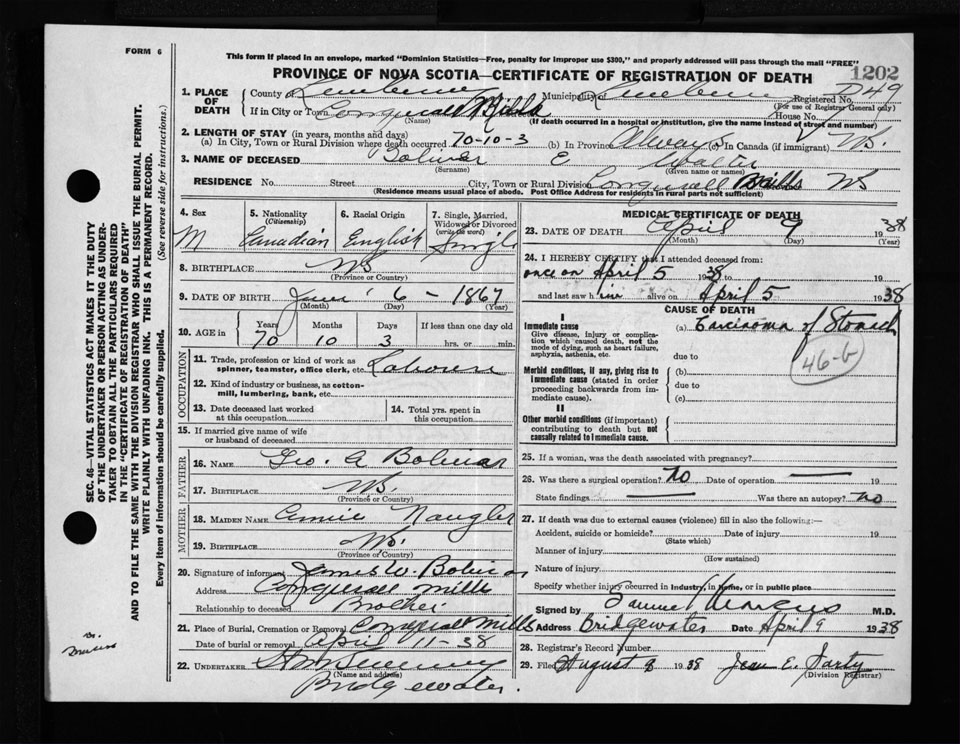 FORM 6
This form if placed in an envelope, marked "Dominion Statistics—Free, penalty for improper use $300," and properly addressed will pass through the mail "FREE"
PROVINCE OF NOVA SCOTIA—CERTIFICATE OF REGISTRATION OF DEATH
1202
1. PLACE OF DEATH
County of Lunenburg Municipality of Lunenburg Registered No. D49
(For use of Registrar General only)
If in City or Town Conquerall Mills House No.
(Name) (If death occurred in a hospital or institution, give the name instead of street and number)
2. LENGTH OF STAY (in years, months and days)
(a) In City, Town or Rural Division where death occurred 70-10-3 (b) In Province Always (c) In Canada (if immigrant) NS.
3. NAME OF DECEASED Bolivar E Walter
(Surname) (Given name or names)
RESIDENCE No. Street City, Town or Rural Division Conquerall Mills NS
(Residence means usual place of abode. Post Office Address for residents in rural parts not sufficient)
4. Sex
M
5. Nationality
(Citizenship)
Canadian
6. Racial Origin
English
7. Single, Married, Widowed or Divorced
(write the word)
Single
8. BIRTHPLACE NS
(Province or Country)
9. DATE OF BIRTH June 6 - 1867
(Month) (Day) (Year)
10. AGE in Years Months Days If less than one day old
70 10 3 hrs. or min.
OCCUPATION
11. Trade, profession or kind of work as spinner, teamster, office clerk, etc. Labourer
12. Kind of industry or business, as cotton-mill, lumbering, bank, etc.
13. Date deceased last worked at this occupation
14. Total yrs. spent in this occupation
15. If married give name of wife or husband of deceased
FATHER
16. NAME Geo. A Bolivar
17. BIRTHPLACE NS.
(Province or Country)
MOTHER
18. MAIDEN NAME Annie Naugler
19. BIRTHPLACE NS.
(Province or Country)
20. Signature of informant James W. Bolivar
Address Conquerall Mills
Relationship to deceased Brother
21. Place of Burial, Cremation or Removal Conquerall Mills
Date of burial or removal April 11-38
22. UNDERTAKER
(Name and address)
Bridgewater.
MEDICAL CERTIFICATE OF DEATH
23. DATE OF DEATH April 9 1938
(Month) (Day) (Year)
24. I HEREBY CERTIFY that I attended deceased from:
once on April 5 1938 to 19
and last saw him alive on April 5 1938
CAUSE OF DEATH
I
Immediate cause
Give disease, injury or complication which caused death, not the mode of dying, such as heart failure, asphyxia, asthenia, etc.
(a) Carcinoma of Stomach
46-b
due to
Morbid conditions, if any, giving rise to immediate cause (stated in order proceeding backwards from immediate cause).
(b)
due to
(c)
II
Other morbid conditions (if important) contributing to death but not causally related to immediate cause.
25. If a woman, was the death associated with pregnancy?
26. Was there a surgical operation? No Date of operation —
State findings — Was there an autopsy? no
27. If death was due to external causes (violence) fill in also the following:—
Accident, suicide or homicide? Date of injury 19
(State which)
Manner of injury
(How sustained)
Nature of injury
Specify whether injury occurred in industry, in home, or in public place
Signed by Marcus M.D.
Address Bridgewater Date April 9 1938
28. Registrar's Record Number
29. Filed August 8 1938 Jean E.
(Division Registrar)
SEC. 46—VITAL STATISTICS ACT MAKES IT THE DUTY
OF THE UNDERTAKER OR PERSON ACTING AS UNDERTAKER TO OBTAIN ALL THE PARTICULARS REQUIRED
IN THE "CERTIFICATE OF REGISTRATION OF DEATH"
AND TO FILE THE SAME WITH THE DIVISION REGISTRAR WHO SHALL ISSUE THE BURIAL PERMIT.
WRITE PLAINLY WITH UNFADING INK. THIS IS A PERMANENT RECORD.
Every item of information should be carefully supplied. (See reverse side for instructions.)